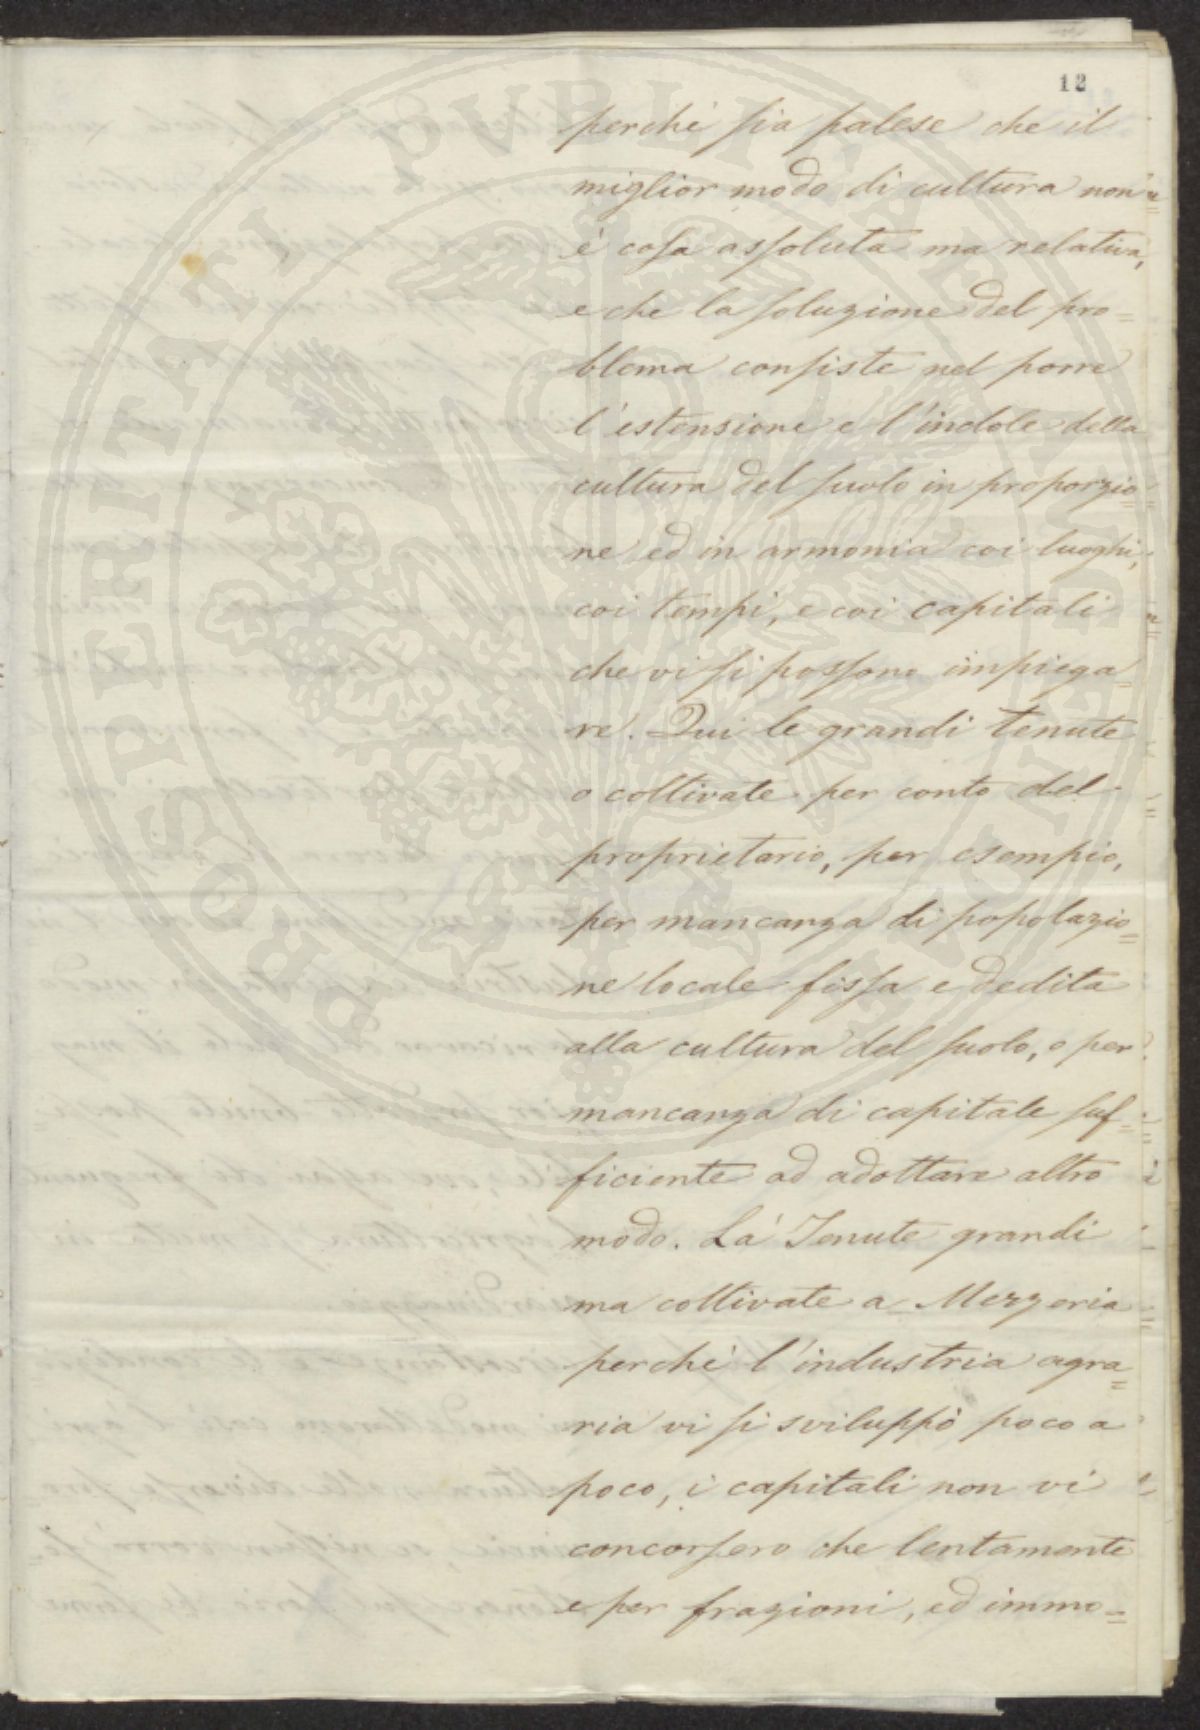 12
perchè sia palese che il
miglior modo di cultura non
è cosa assoluta ma relativa,
e che la soluzione del pro=
blema consiste nel porre
l'estensione e l'indole della
cultura del suolo in proporzio=
ne ed in armonia coi luoghi,
coi tempi, e coi capitali
che vi si possono impiega=
re. Qui le grandi tenute
o coltivate per conto del
proprietario, per esempio,
per mancanza di popolazio=
ne locale fissa e dedita
alla cultura del suolo, o per
mancanza di capitale suf=
ficiente ad adottare altro
modo. Là Tenute grandi
ma coltivate a Mezzeria
perchè l'industria agra=
ria vi si sviluppò poco a
poco, i capitali non vi
concorsero che lentamente
e per frazioni, ed immo=
PROSPERITATI PVBLICAE